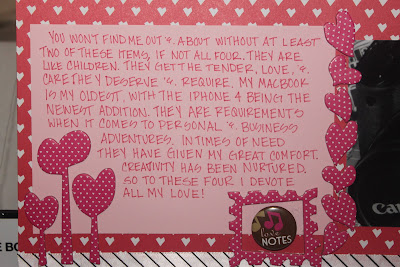 YOU WON'T FIND ME OUT & ABOUT WITHOUT AT LEAST
TWO OF THESE ITEMS, IF NOT ALL FOUR. THEY ARE
LIKE CHILDREN. THEY GET THE TENDER, LOVE, &
CARE THEY DESERVE & REQUIRE. MY MACBOOK
IS MY OLDEST, WITH THE IPHONE 4 BEING THE
NEWEST ADDITION. THEY ARE REQUIREMENTS
WHEN IT COMES TO PERSONAL & BUSINESS
ADVENTURES. IN TIMES OF NEED
THEY HAVE GIVEN MY GREAT COMFORT.
CREATIVITY HAS BEEN NURTURED.
SO TO THESE FOUR I DEVOTE
ALL MY LOVE!
love
NOTES
Can